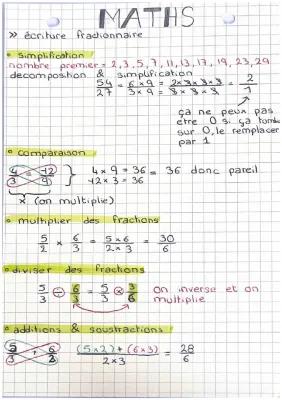 MATHS
» écriture fractionnaire
• simplification
nombre premier = 2, 3, 5, 7, 11, 13, 17, 19, 23, 29
decomposition & simplification
54/27 = 6 x 9/3 x 9 = 2 x 3 x 3 x 3/3 x 3 x 3 = 2/1
ça ne peux pas
être 0 si ça tombe
sur 0, le remplacer
par 1
• comparaison
4/3 = 12/9 } 4 x 9 = 36 = 36 donc pareil
12 x 3 = 36
x (on multiplie)
• multiplier des fractions
5/2 x 6/3 = 5 x 6/2 x 3 = 30/6
• diviser des fractions
5/3 ÷ 6/3 = 5/3 x 3/6 on inverse et on
multiplie
• additions & soustractions
5/3 + 6/2 (5 x 2) + (6 x 3)/2 x 3 = 28/6